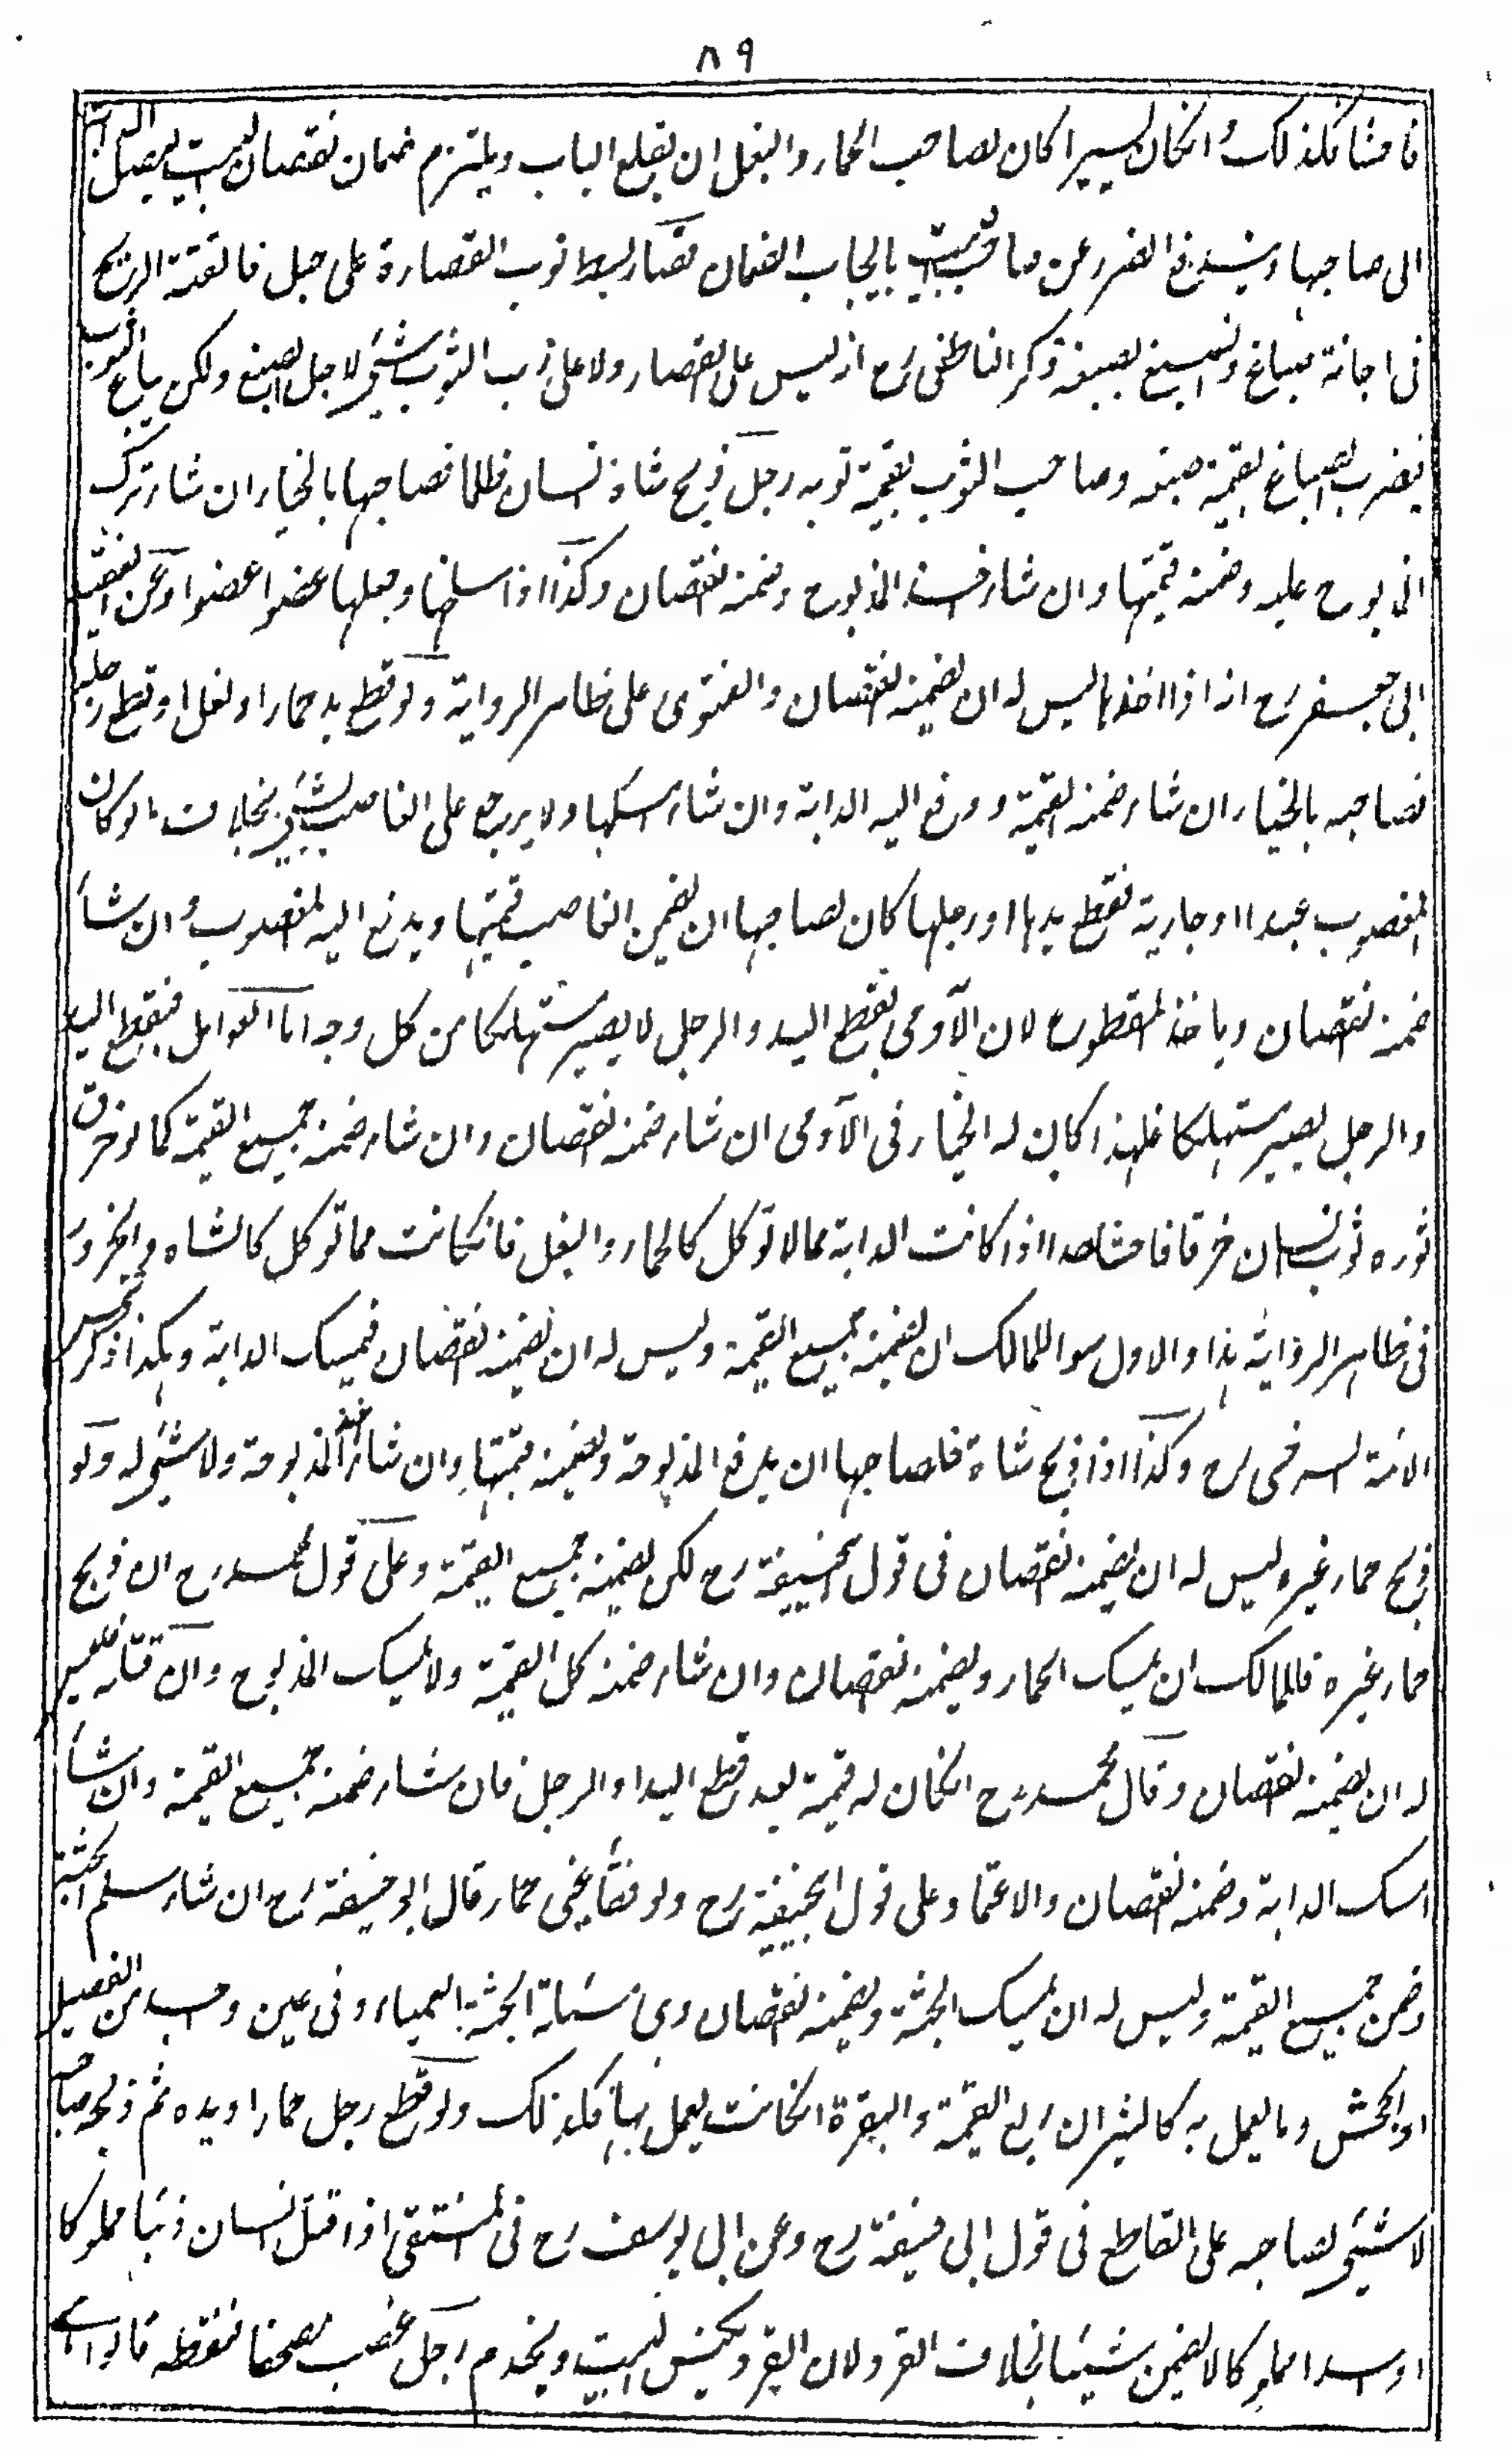 ٨٩
فاحشا فكذلك وانكان يسيرا كان لصاحب الحمار والبغل ان يقلع الباب ويلتزم ضمان نقصان البيت ليصل
الى صاحبها ويندفع الضرر عن صاحب البيت بايجاب الضمان قصار بسط ثوب القصارة على حبل فالقته الريح
فى اجانة صباغ وانصبغ بصبغه ذكر الناطفى رح انه ليس على القصار ولا على رب الثوب شئ لاجل الصبغ ولكن يباع الثوب
فيضرب الصباغ بقيمة صبغه وصاحب الثوب بقيمة ثوبه رجل ذبح شاة انسان ظلما فصاحبها بالخيار ان شاء ترك
المذبوح عليه وضمنه قيمتها وان شاء اخذ المذبوح وضمنه النقصان وكذا اذا سلخها وجعلها عضوا عضوا وعن الفقيه
ابى جعفر رح انه اذا اخذها ليس له ان يضمنه النقصان والفتوى على ظاهر الرواية ولو قطع يد حمار او بغل او قطع رجله
فصاحبه بالخيار ان شاء ضمنه القيمة ودفع اليه الدابة وان شاء امسكها ولا يرجع على الغاصب بشئ بخلاف ما لو كان
المغصوب عبدا او جارية فقطع يدها او رجلها كان لصاحبها ان يضمن الغاصب قيمتها ويدفع اليه المغصوب وان شاء
ضمنه النقصان وياخذ المقطوع لان الآدمى بقطع اليد والرجل لا يصير مستهلكا من كل وجه اما العوامل فبقطع اليد
والرجل يصير مستهلكا فلهذا كان له الخيار فى الآدمى ان شاء ضمنه النقصان وان شاء ضمنه جميع القيمة كما لو خرق
ثوره ثوب انسان خرقا فاحشا هذا اذا كانت الدابة مما لا توكل كالحمار والبغل فانكانت مما توكل كالشاه والجزور
فى ظاهر الرواية هذا والاول سواء للمالك ان يضمنه جميع القيمة وليس له ان يضمنه النقصان فيمسك الدابة وهكذا ذكر شمس
الائمة السرخسى رح وكذا اذا ذبح شاة فلصاحبها ان يدفع المذبوحة ويضمنه قيمتها وان شاء اخذ المذبوحة ولا شئ له ولو
ذبح حمار غيره ليس له ان يضمنه النقصان فى قول ابيحنيفة رح لكن يضمنه جميع القيمة وعلى قول محمد رح ان ذبح
حمار غيره فللمالك ان يمسك الحمار ويضمنه النقصان وان شاء ضمنه كل القيمة ولا يمسك المذبوح وان قتله فليس
له ان يضمنه النقصان وقال محمد رح انكان له قيمة بعد قطع اليد او الرجل فان شاء ضمنه جميع القيمة وان شاء
امسك الدابة وضمنه النقصان والاعتماد على قول ابيحنيفة رح ولو فقأ عينى حمار قال ابو حنيفة رح ان شاء سلم الجثة
وضمن جميع القيمة وليس له ان يمسك الجثة ويضمنه النقصان وهى مسئلة الجثة العمياء وفى عين واحدة من الفصيل
او الجحش وما يعمل به كالثيران ربع القيمة والبقرة انكانت يعمل بها فكذلك ولو قطع رجل حمار او يده ثم ذبحه صاحبه
لا شئ لصاحبه على القاطع فى قول ابى حنيفة رح وعن ابى يوسف رح فى المنتقى اذا قتل انسان ذئبا مملوكا
او اسدا مملوكا لا يضمن شيئا بخلاف القرد لان القرد يكنس البيت ويخدم رجل غصب مصحفا فنقطه قالوا